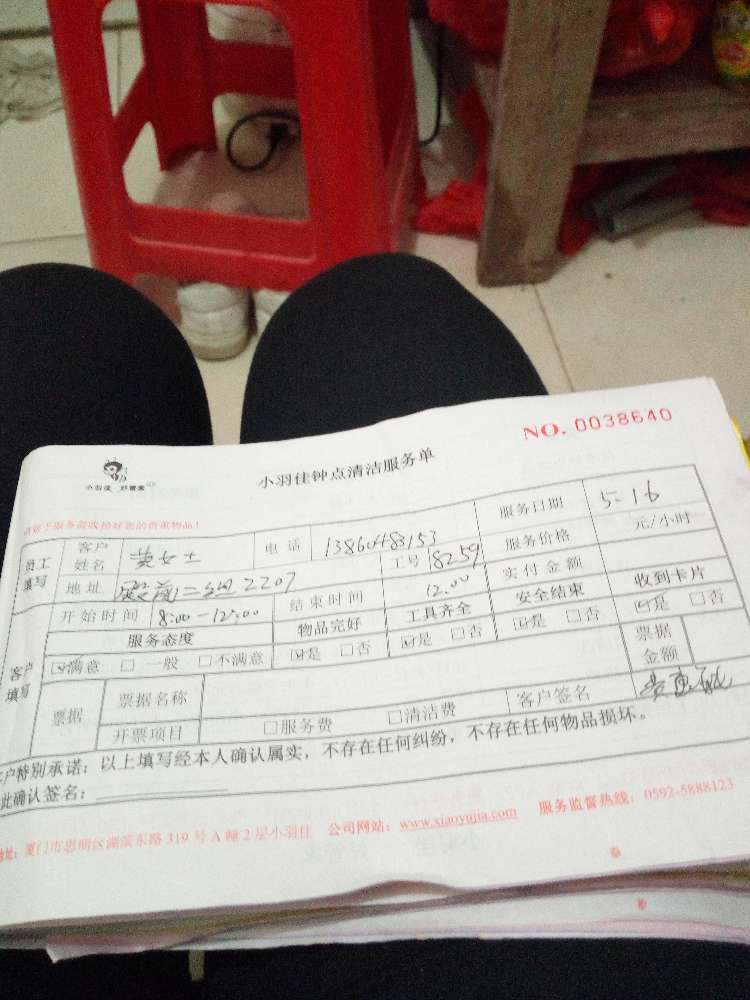 NO. 0038640
小羽佳 好管家
小羽佳钟点清洁服务单
员工填写 客户姓名 黄女士 电话 13860483153 服务日期 5.16
地址 殿前二组2207 工号 18259 服务价格 元/小时
开始时间 8:00-12:00 结束时间 12.00 实付金额
服务态度 物品完好 工具齐全 安全结束 收到卡片
客户填写 ☑满意 □一般 □不满意 ☑是 □否 ☑是 □否 ☑是 □否 ☑是 □否
票据 票据名称 票据金额
开票项目 □服务费 □清洁费 客户签名
客户特别承诺：以上填写经本人确认属实，不存在任何纠纷，不存在任何物品损坏。
此确认签名：
地址：厦门市思明区湖滨东路319号A幢2层小羽佳 公司网站：www.xiaoyujia.com 服务监督热线：0592-5888123